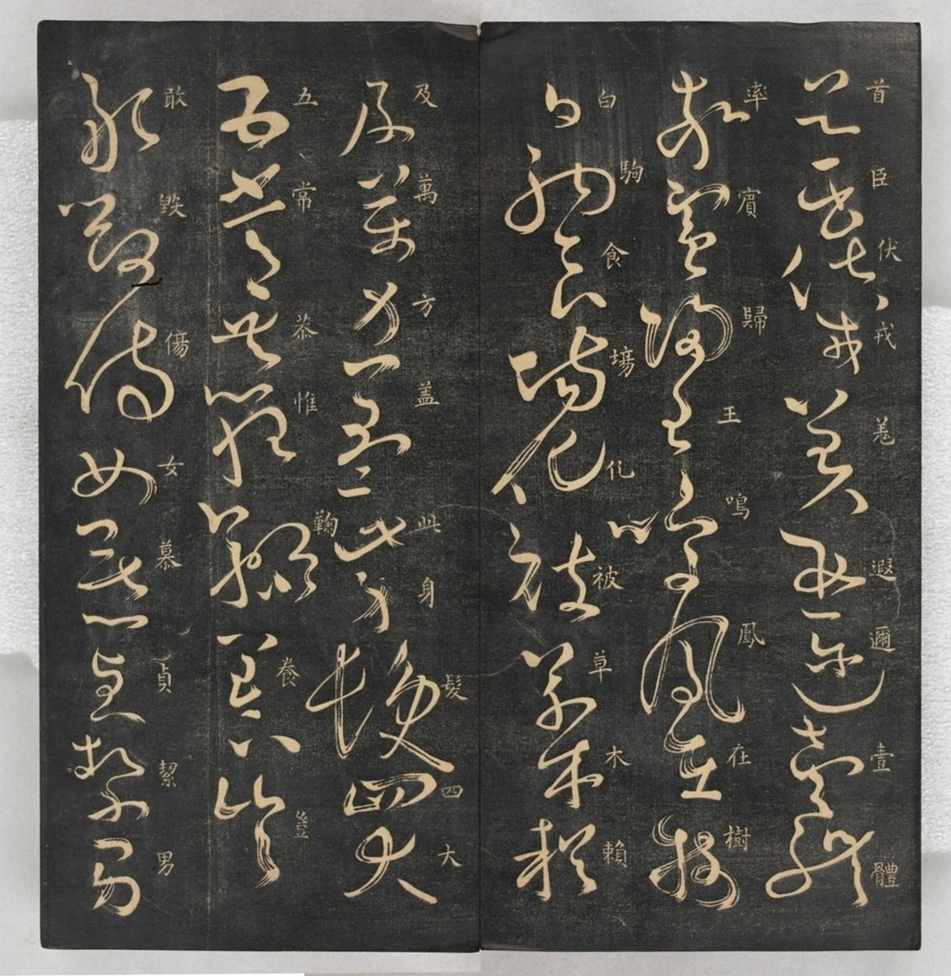 首臣伏戎羌遐邇壹體
率賓歸王鳴鳳在樹
白駒食塲化被草木賴
及萬方盖此身髮四大
五常恭惟鞠養豈
敢毀傷女慕貞絜男